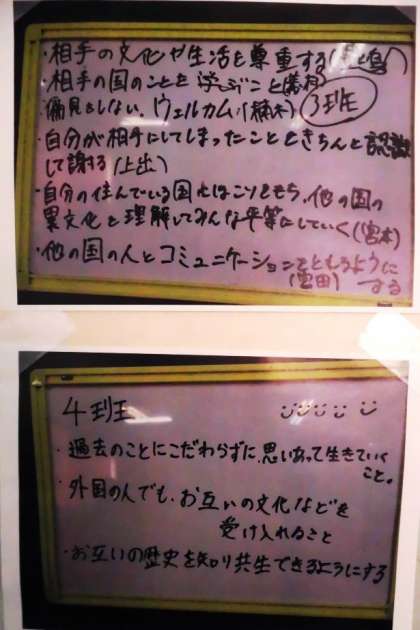 ・相手の文化や生活を尊重する
・相手の国のことを学ぶこと
・偏見をしない、ウェルカム!(楠木) 3班
・自分が相手にしてしまったことときちんと認識
して謝る(上出)
・自分の住んでいる国にほこりをもち、他の国の
異文化を理解してみんな平等にしていく(宮本)
・他の国の人とコミュニケーションをともるように
する
(富田)
4班
・過去のことにこだわらずに、思いあって生きていく
こと。
・外国の人でも、お互いの文化などを
受け入れること
・お互いの歴史を知り共生できるようにする